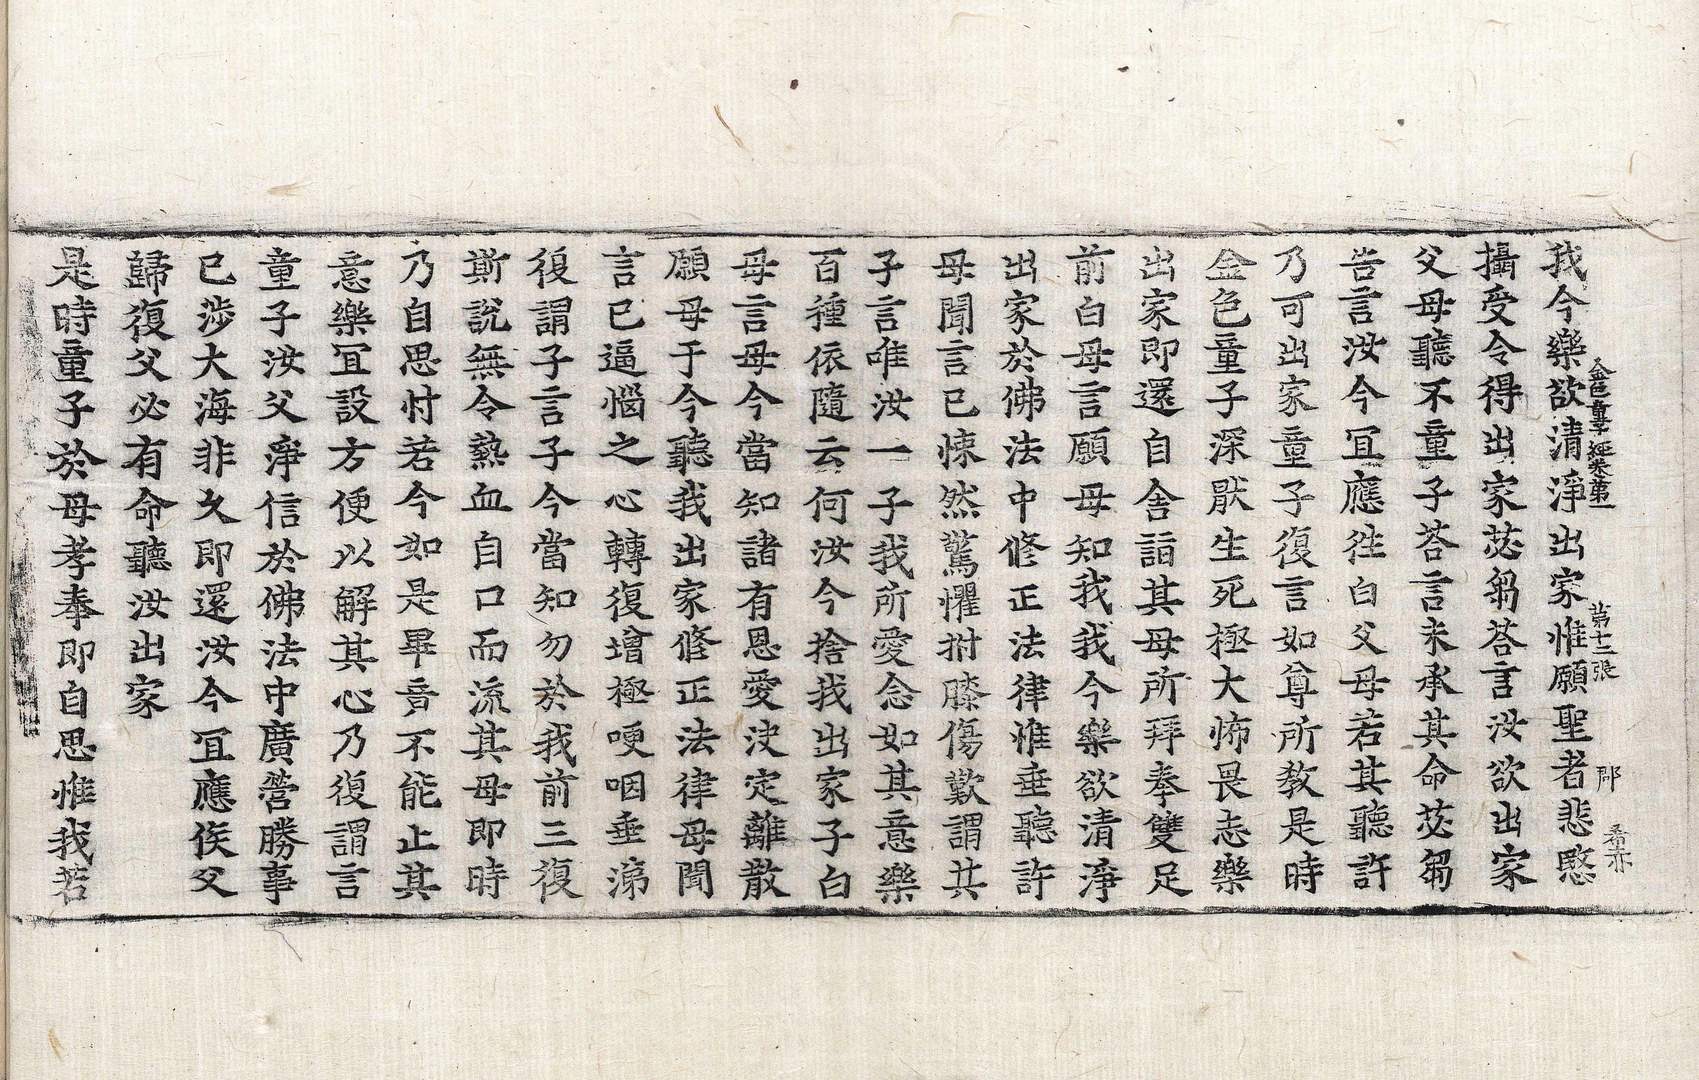 我今樂欲清淨出家惟願聖者悲愍
金色童子經卷第一 第十二張 郡
攝受令得出家苾芻荅言汝欲出家
父母聽不童子荅言未承其命苾芻
告言汝今冝應往白父母若其聽許
乃可出家童子復言如尊所教是時
金色童子深猒生死極大怖畏志樂
出家即還自舍詣其母所拜奉雙足
前白母言願母知我我今樂欲清淨
出家於佛法中修正法律惟垂聽許
母聞言已悚然驚懼拊膝傷歎謂其
子言唯汝一子我所愛念如其意樂
百種依隨云何汝今捨我出家子白
母言母今當知諸有恩愛决定離散
願母于今聽我出家修正法律母聞
言已逼惱之心轉復增極哽咽垂涕
復謂子言子今當知勿於我前三復
斯說無令熱血自口而流其母即時
乃自思忖若今如是畢竟不能止其
意樂冝設方便以解其心乃復謂言
童子汝父淨信於佛法中廣營勝事
已涉大海非久即還汝今冝應俟父
歸復父必有命聽汝出家
是時童子於母孝奉即自思惟我若